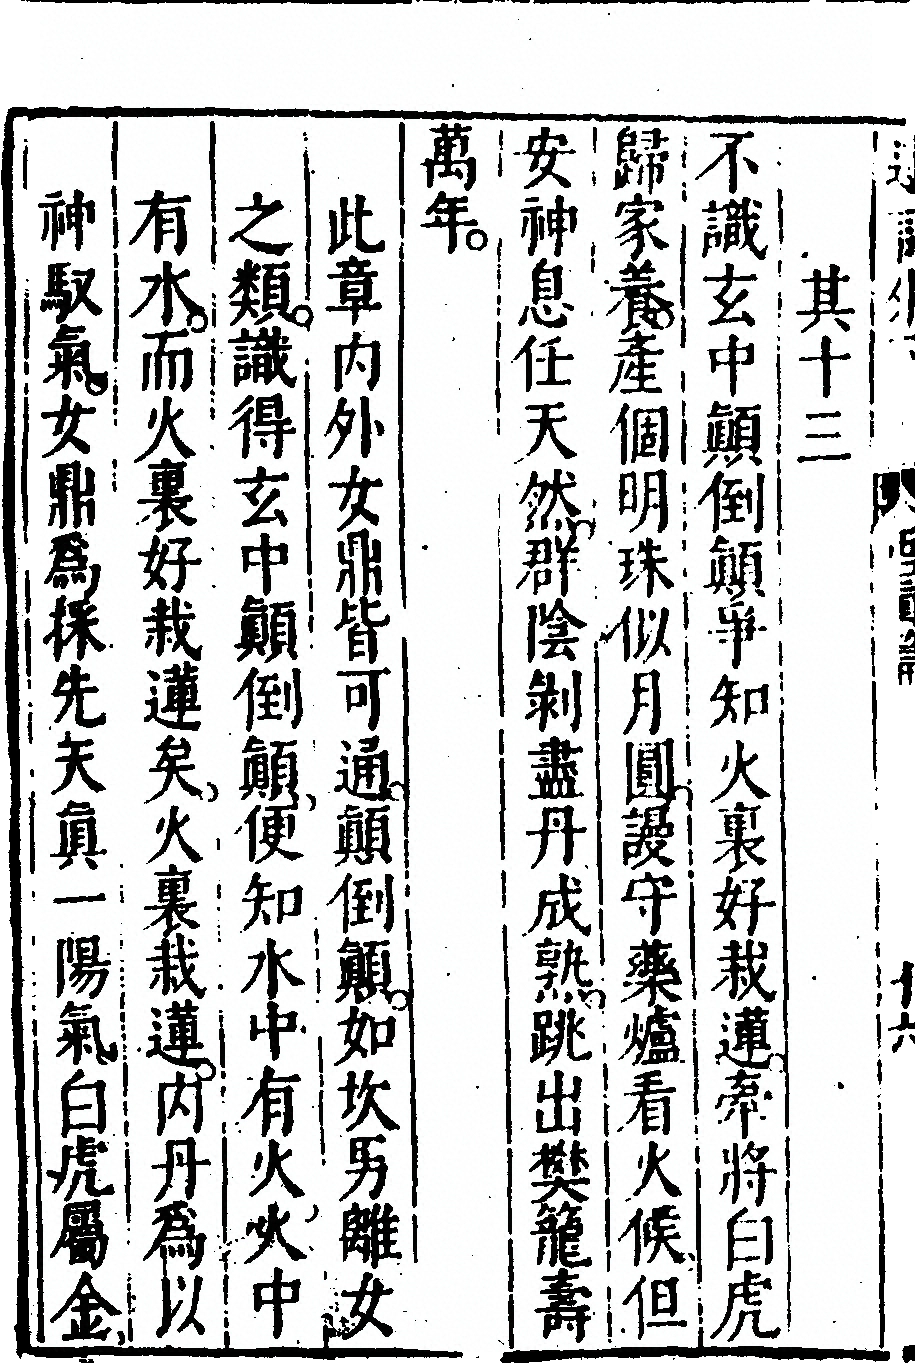 其十三
不識玄中顛倒顛爭知火裏好栽蓮牽將白虎
歸家養產個明珠似月圓謾守藥爐看火候但
安神息任天然群陰剝盡丹成熟跳出樊籠壽
萬年
此章内外女鼎皆可通顛倒顛如坎男離女
之類識得玄中顛倒顛便知水中有火火中
有水而火裏好栽蓮矣火裏栽蓮内丹爲以
神馭氣女鼎爲採先天眞一陽氣白虎屬金